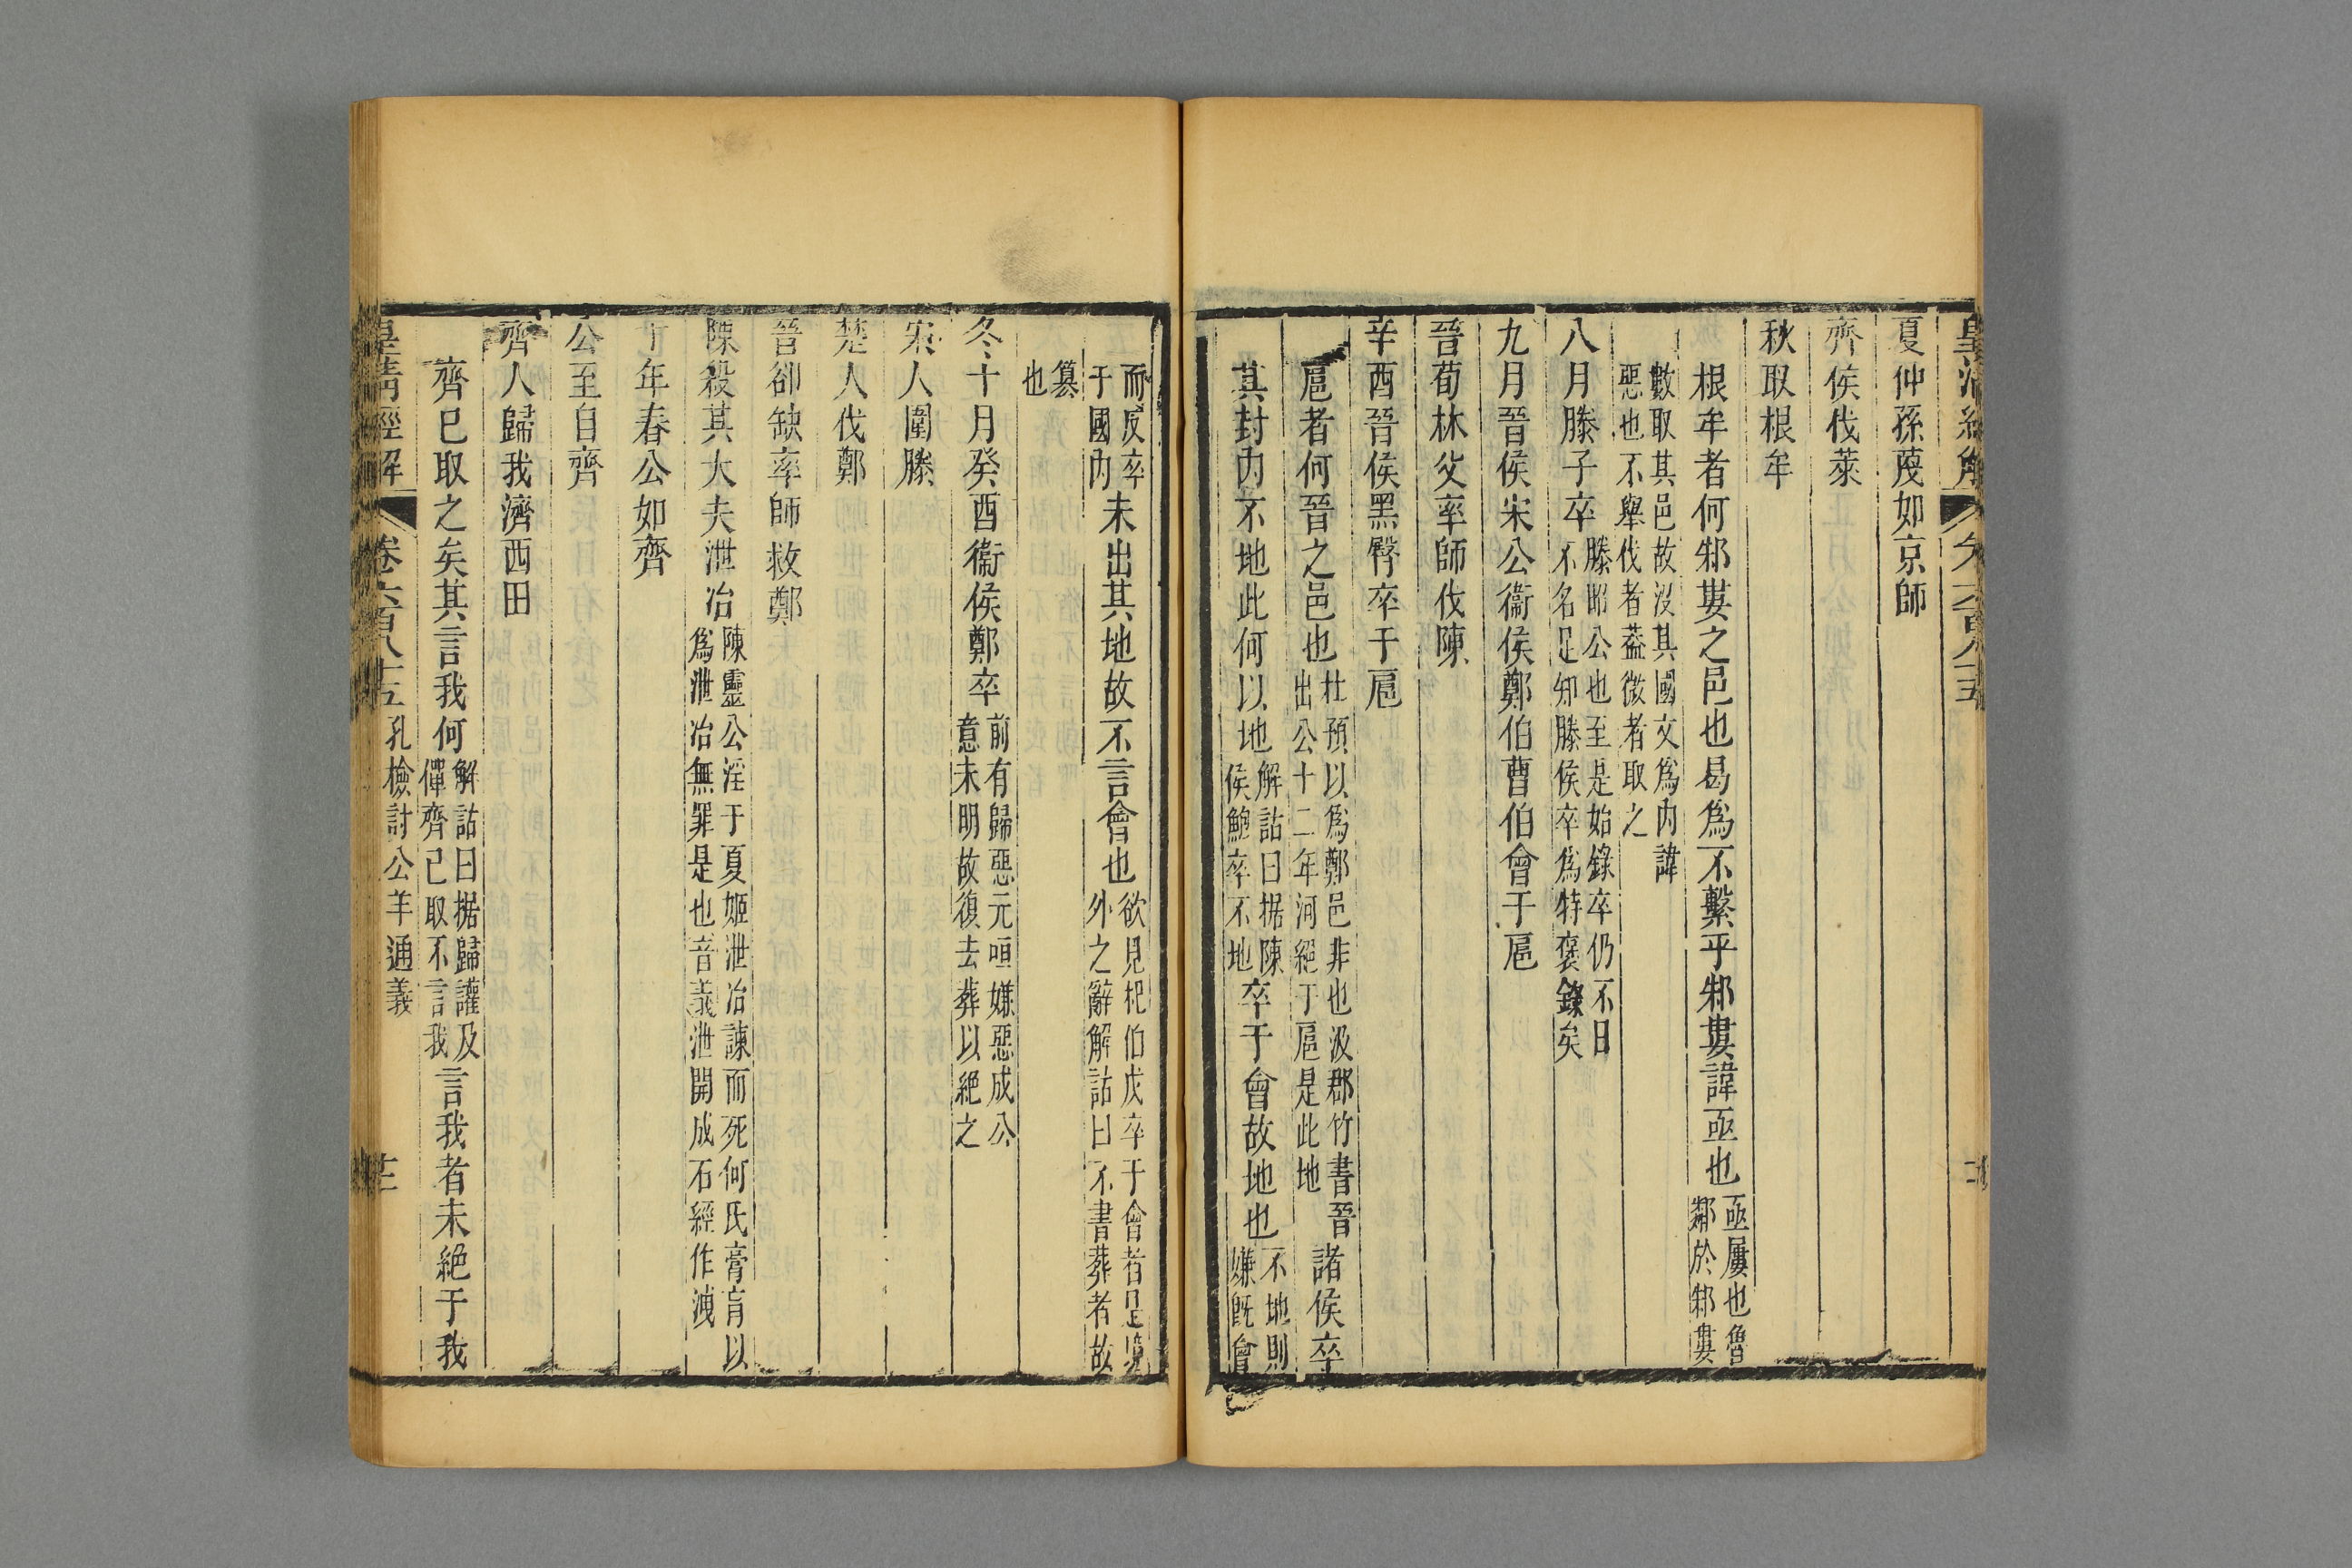 皇清經解 卷六百八十五
夏仲孫蔑如京師
齊侯伐萊
秋取根牟
根牟者何邾婁之邑也曷爲不繫乎邾婁諱亟也
亟屢也魯
鄰於邾婁
數取其邑故沒其國文爲內諱
惡也不舉伐者葢微者取之
八月滕子卒
滕昭公也至是始錄卒仍不日
不名足知滕侯卒爲特襃錄矣
九月晉侯宋公衞侯鄭伯曹伯會于扈
晉荀林父率師伐陳
辛酉晉侯黑臀卒于扈
扈者何晉之邑也
杜預以爲鄭邑非也汲郡竹書晉
出公十二年河絕于扈是此地
諸侯卒
其封內不地此何以地
解詁曰据陳
侯鮑卒不地
卒于會故地也
不地則
嫌旣會
而反卒
于國內
未出其地故不言會也
欲見杞伯戊卒于會者是竟
外之辭解詁曰不書葬者故
篡
也
冬十月癸酉衞侯鄭卒
前有歸惡元咺嫌惡成公
意未明故復去葬以絕之
宋人圍滕
楚人伐鄭
晉卻缺率師救鄭
陳殺其大夫泄冶
陳靈公淫于夏姬泄冶諫而死何氏膏肓以
爲泄冶無罪是也音義泄開成石經作洩
十年春公如齊
公至自齊
齊人歸我濟西田
齊已取之矣其言我何
解詁曰据歸讙及
僤齊已取不言我
言我者未絕于我
皇清經解 卷六百八十五 孔檢討公羊通義